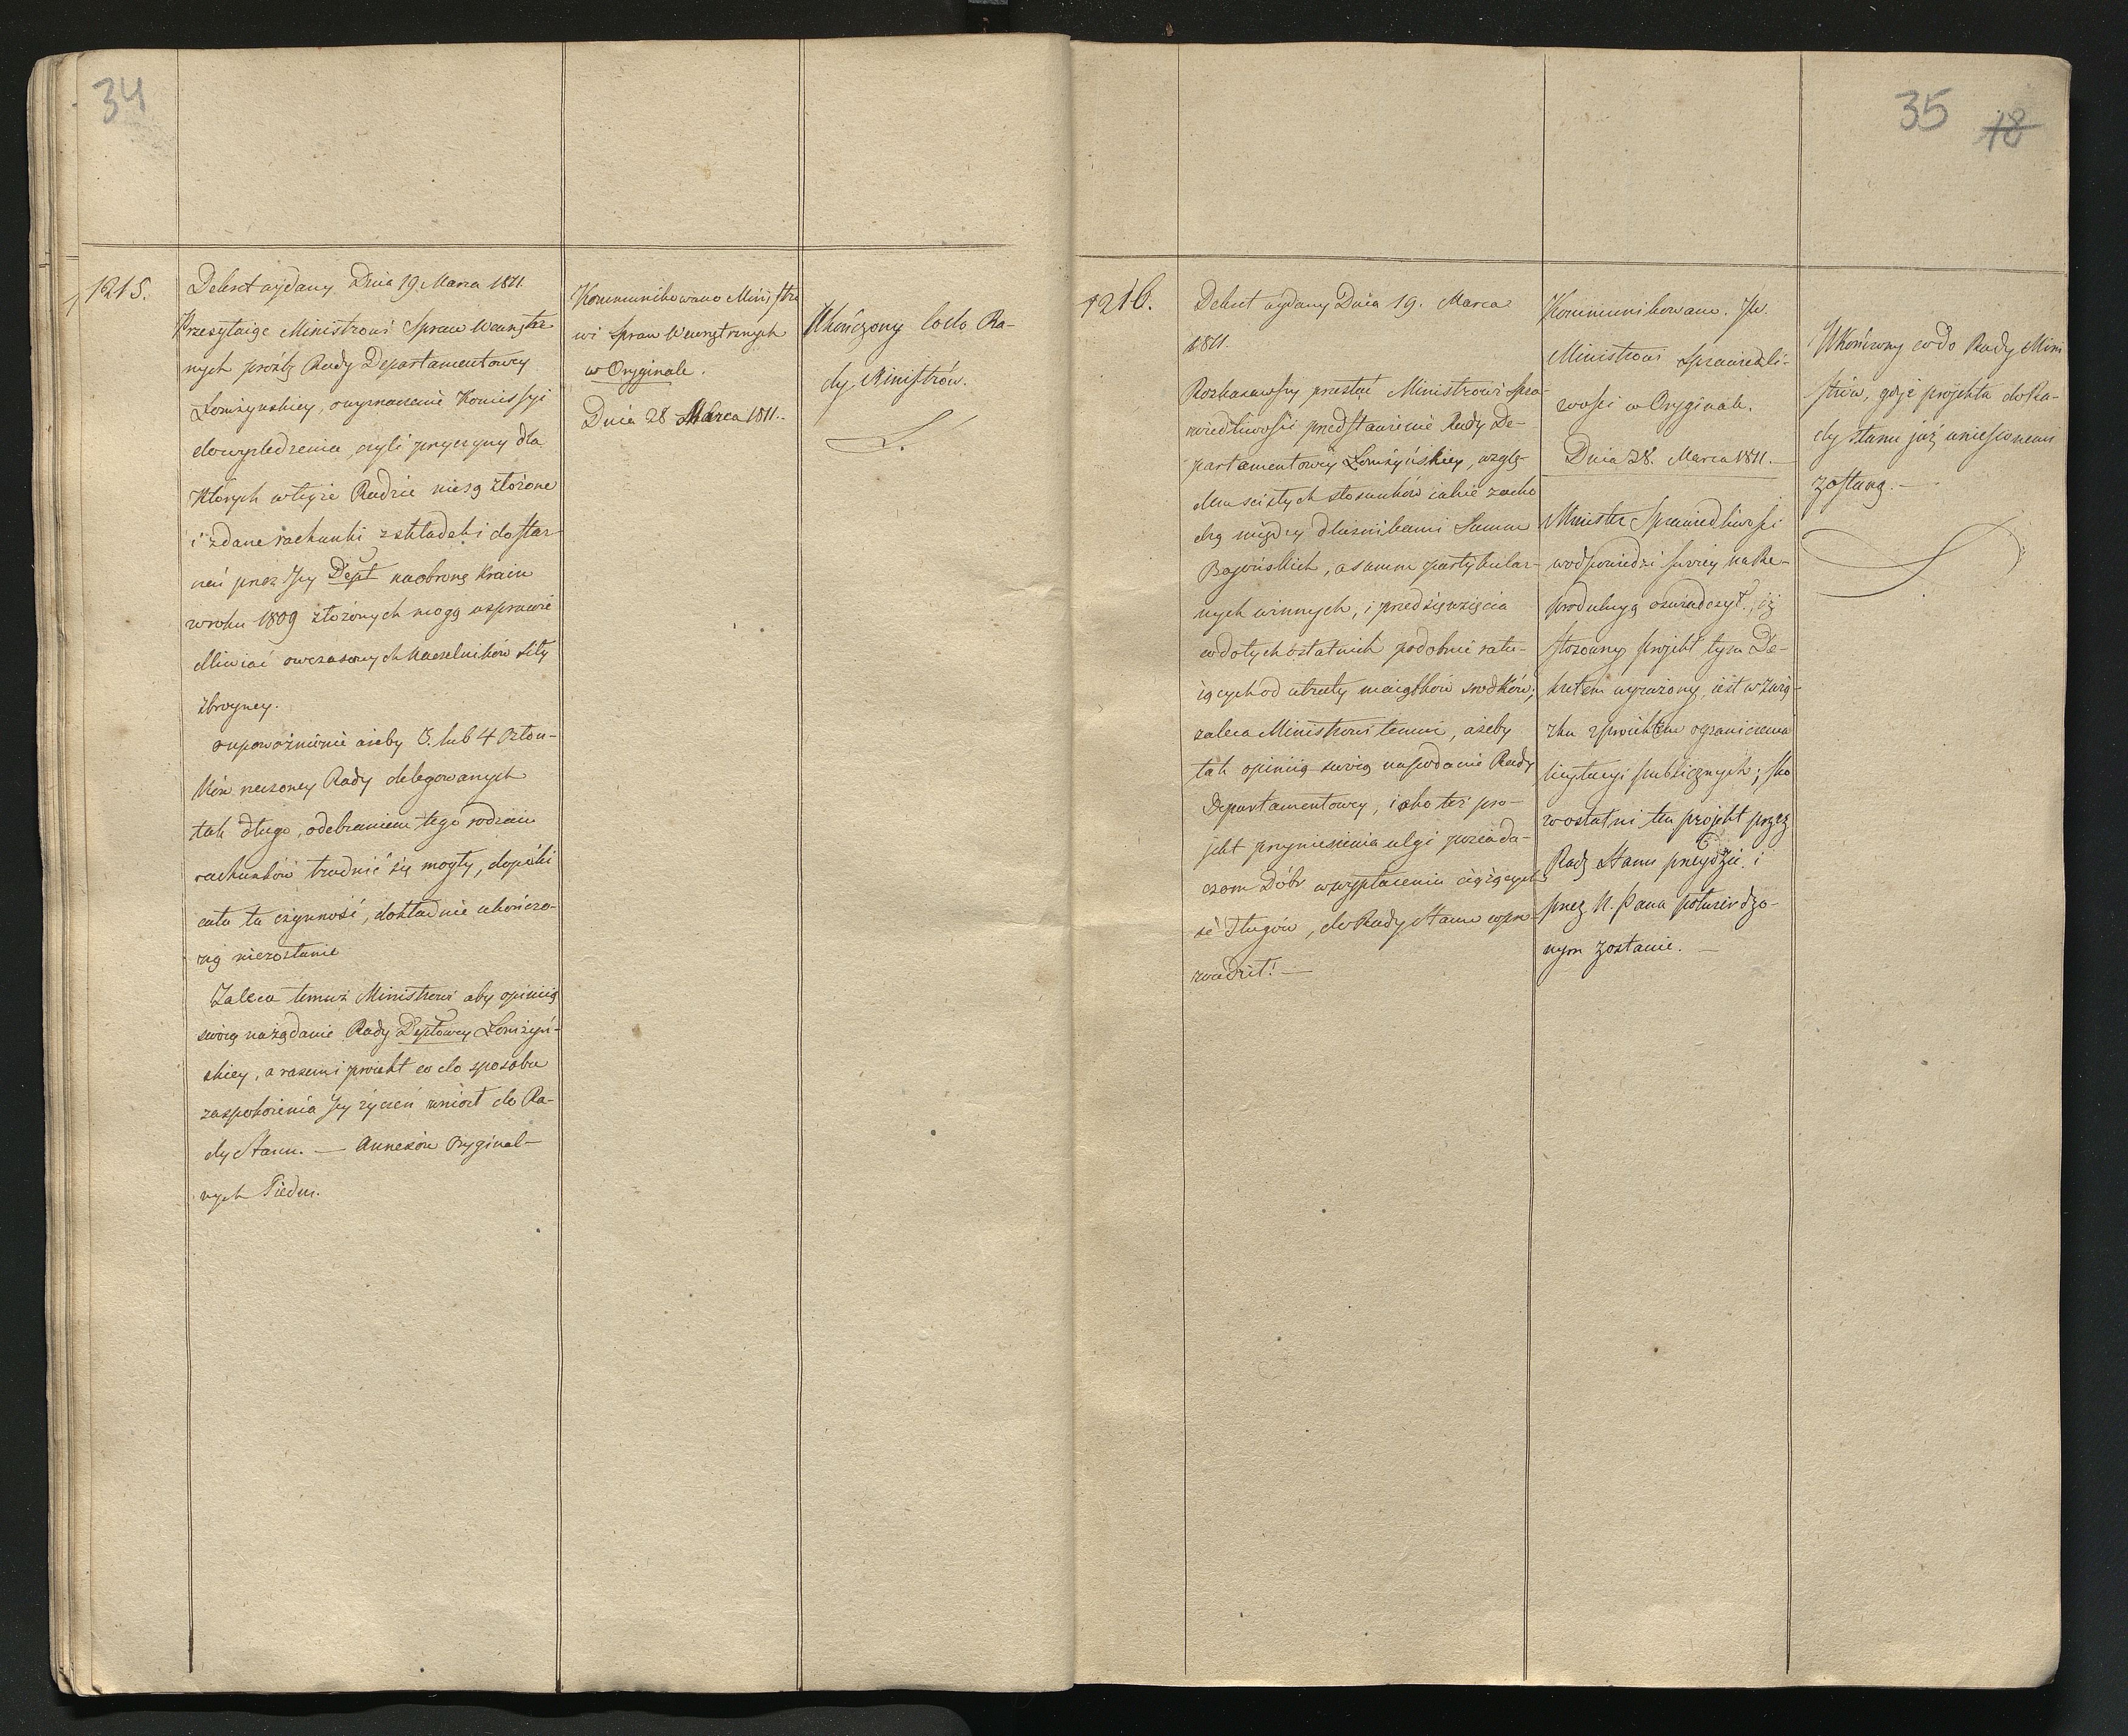 34
1215.
Dekret wydany Dnia 19. Marca 1811.
Przesyłaiąc Ministrowi Spraw Wewnętrz
nych prośbę Rady Departamentowey
Łomżyńskiey, o wyznaczenie Komissyi
do wyśledzenia, czyli przyczyny dla
których w teyże Radzie niesą złożone
i zdane rachunki z składek i dostar-
czeń przez Jey Dept na obronę Kraiu
w roku 1809 złożonych mogą usprawie
dliwiać owczasowych Naczelników siły
zbroyney.
o upoważnienie ażeby 3. lub 4 Człon-
ków rzeczoney Rady delegowanych
tak długo, odebraniem tego rodzaiu
rachunków trudnić się mogły, dopóki
cała ta czynność, dokładnie ukończo-
ną niezostanie
Zaleca temuż Ministrowi aby opinią
swoią na żądanie Rady Deptowey Łomżyń-
skiey, a razem i proiekt co do sposobu
zaspokoienia Jey życzeń wniósł do Ra-
dy Stanu. — Annexów Oryginal-
nych Siedm.
Kommunikowano Ministro
wi Spraw Wewnętrznych
w Oryginale.
Dnia 28 Marca 1811.
Ukończony co do Ra-
dy Ministrów.
35 18
1216.
Dekret wydany Dnia 19. Marca
1811.
Rozkazawszy przesłać Ministrowi Spra-
wiedliwości przedstawienie Rady De-
partamentowey Łomżyńskiey, wzglę-
dem scisłych stosunków iakie zacho
dzą między dłużnikami Summ
Bajońskich, a summ partykular-
nych winnych, i przedsięwzięcia
co do tych ostatnich podobnie ratu-
iących od utraty maiątków srodków;
zaleca Ministrowi temuż, ażeby
tak opinią swoią na podanie Rady
Departamentowey, iako też pro-
jekt przyniesienia ulgi posiada-
czom Dóbr w wypłaceniu ciążących
ie długów, do Rady Stanu wpro-
wadził. —
Kommunikowano JW.
Ministrowi Sprawiedli-
wości w Oryginale.
Dnia 28. Marca 1811.
Minister Sprawiedliwości
w odpowiedzi swoiey na Re-
produkcyą oświadczył, iż
stosowny projekt tym De-
kretem wyrażony, iest w związ-
ku z proiektem ograniczenia
licytacyi publicznych; sko
ro ostatni ten projekt przez
Radę Stanu przeydzie i
przez N. Pana potwierdzo-
nym zostanie. —
Ukończony co do Rady Mini
strów, gdyż projekta do Ra-
dy Stanu już wniesionemi
zostaną. —